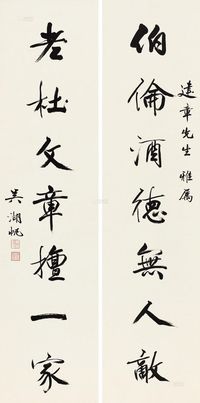 伯倫酒德無人敵
達章先生雅屬
老杜文章擅一家
吳湖帆